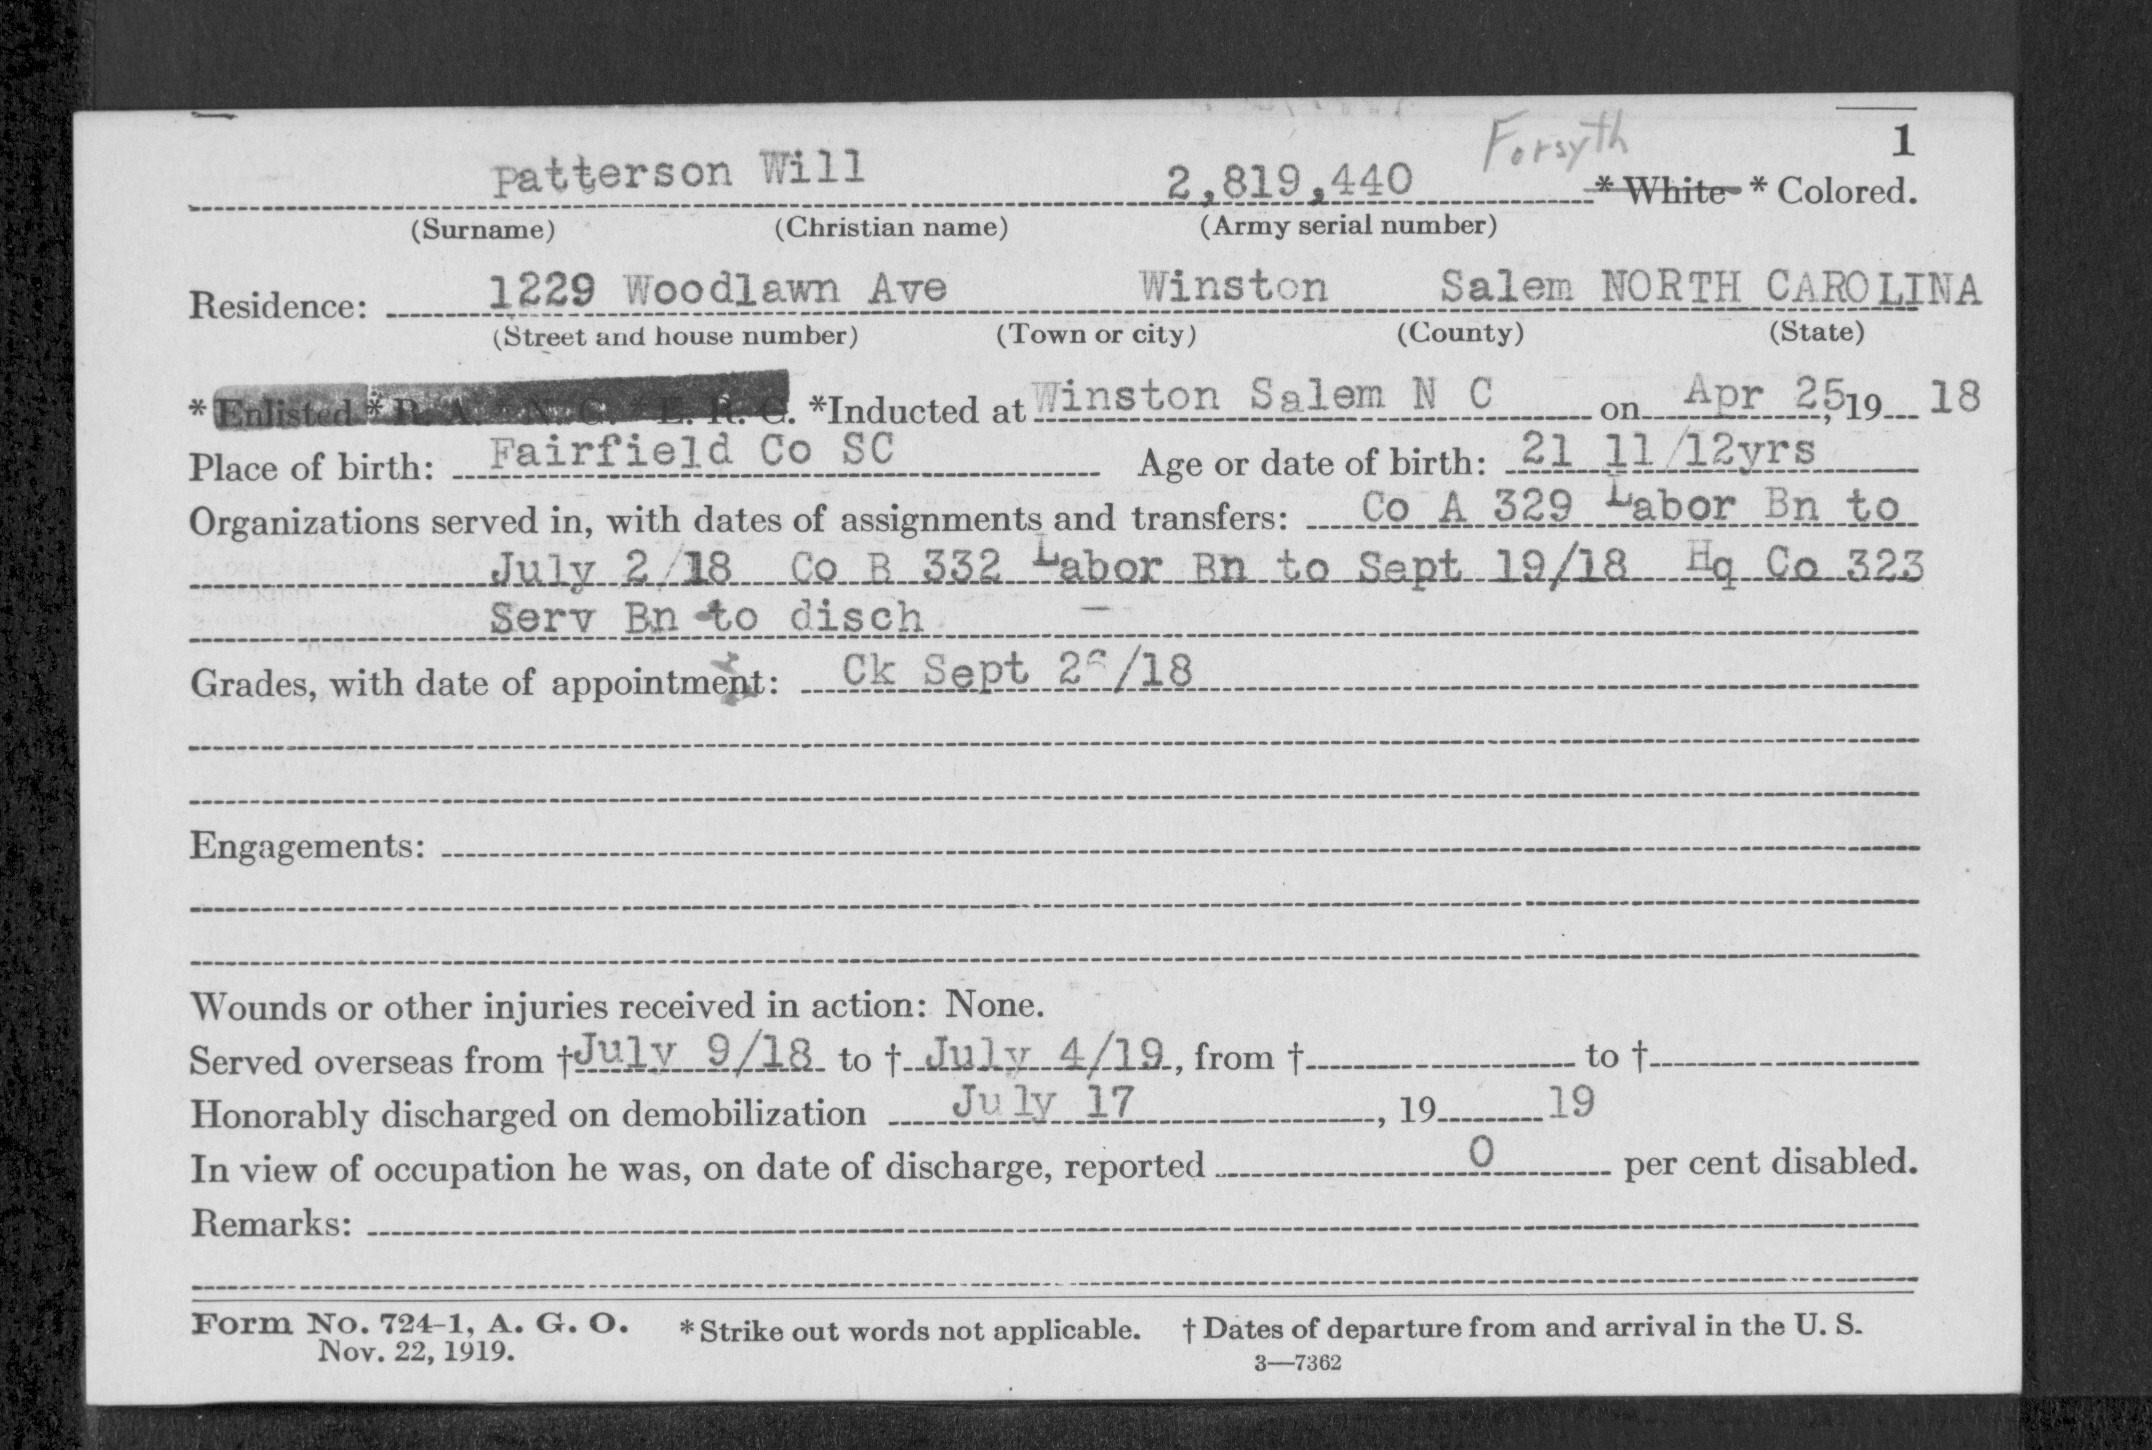 Forsyth 1
Patterson Will 2,819,440 * White * Colored.
(Surname) (Christian name) (Army serial number)
Residence: 1229 Woodlawn Ave Winston Salem NORTH CAROLINA
(Street and house number) (Town or city) (County) (State)
* Enlisted * R. A. * N. G. * E. R. C. *Inducted at Winston Salem N C on Apr 25, 19 18
Place of birth: Fairfield Co SC Age or date of birth: 21 11/12yrs
Organizations served in, with dates of assignments and transfers: Co A 329 Labor Bn to
July 2/18 Co B 332 Labor Bn to Sept 19/18 Hq Co 323
Serv Bn to disch
Grades, with date of appointment: Ck Sept /18
Engagements:
Wounds or other injuries received in action: None.
Served overseas from † July 9/18 to † July 4/19, from † to †
Honorably discharged on demobilization July 17, 19 19
In view of occupation he was, on date of discharge, reported 0 per cent disabled.
Remarks:
Form No. 724-1, A. G. O. * Strike out words not applicable. † Dates of departure from and arrival in the U. S.
Nov. 22, 1919. 3—7362